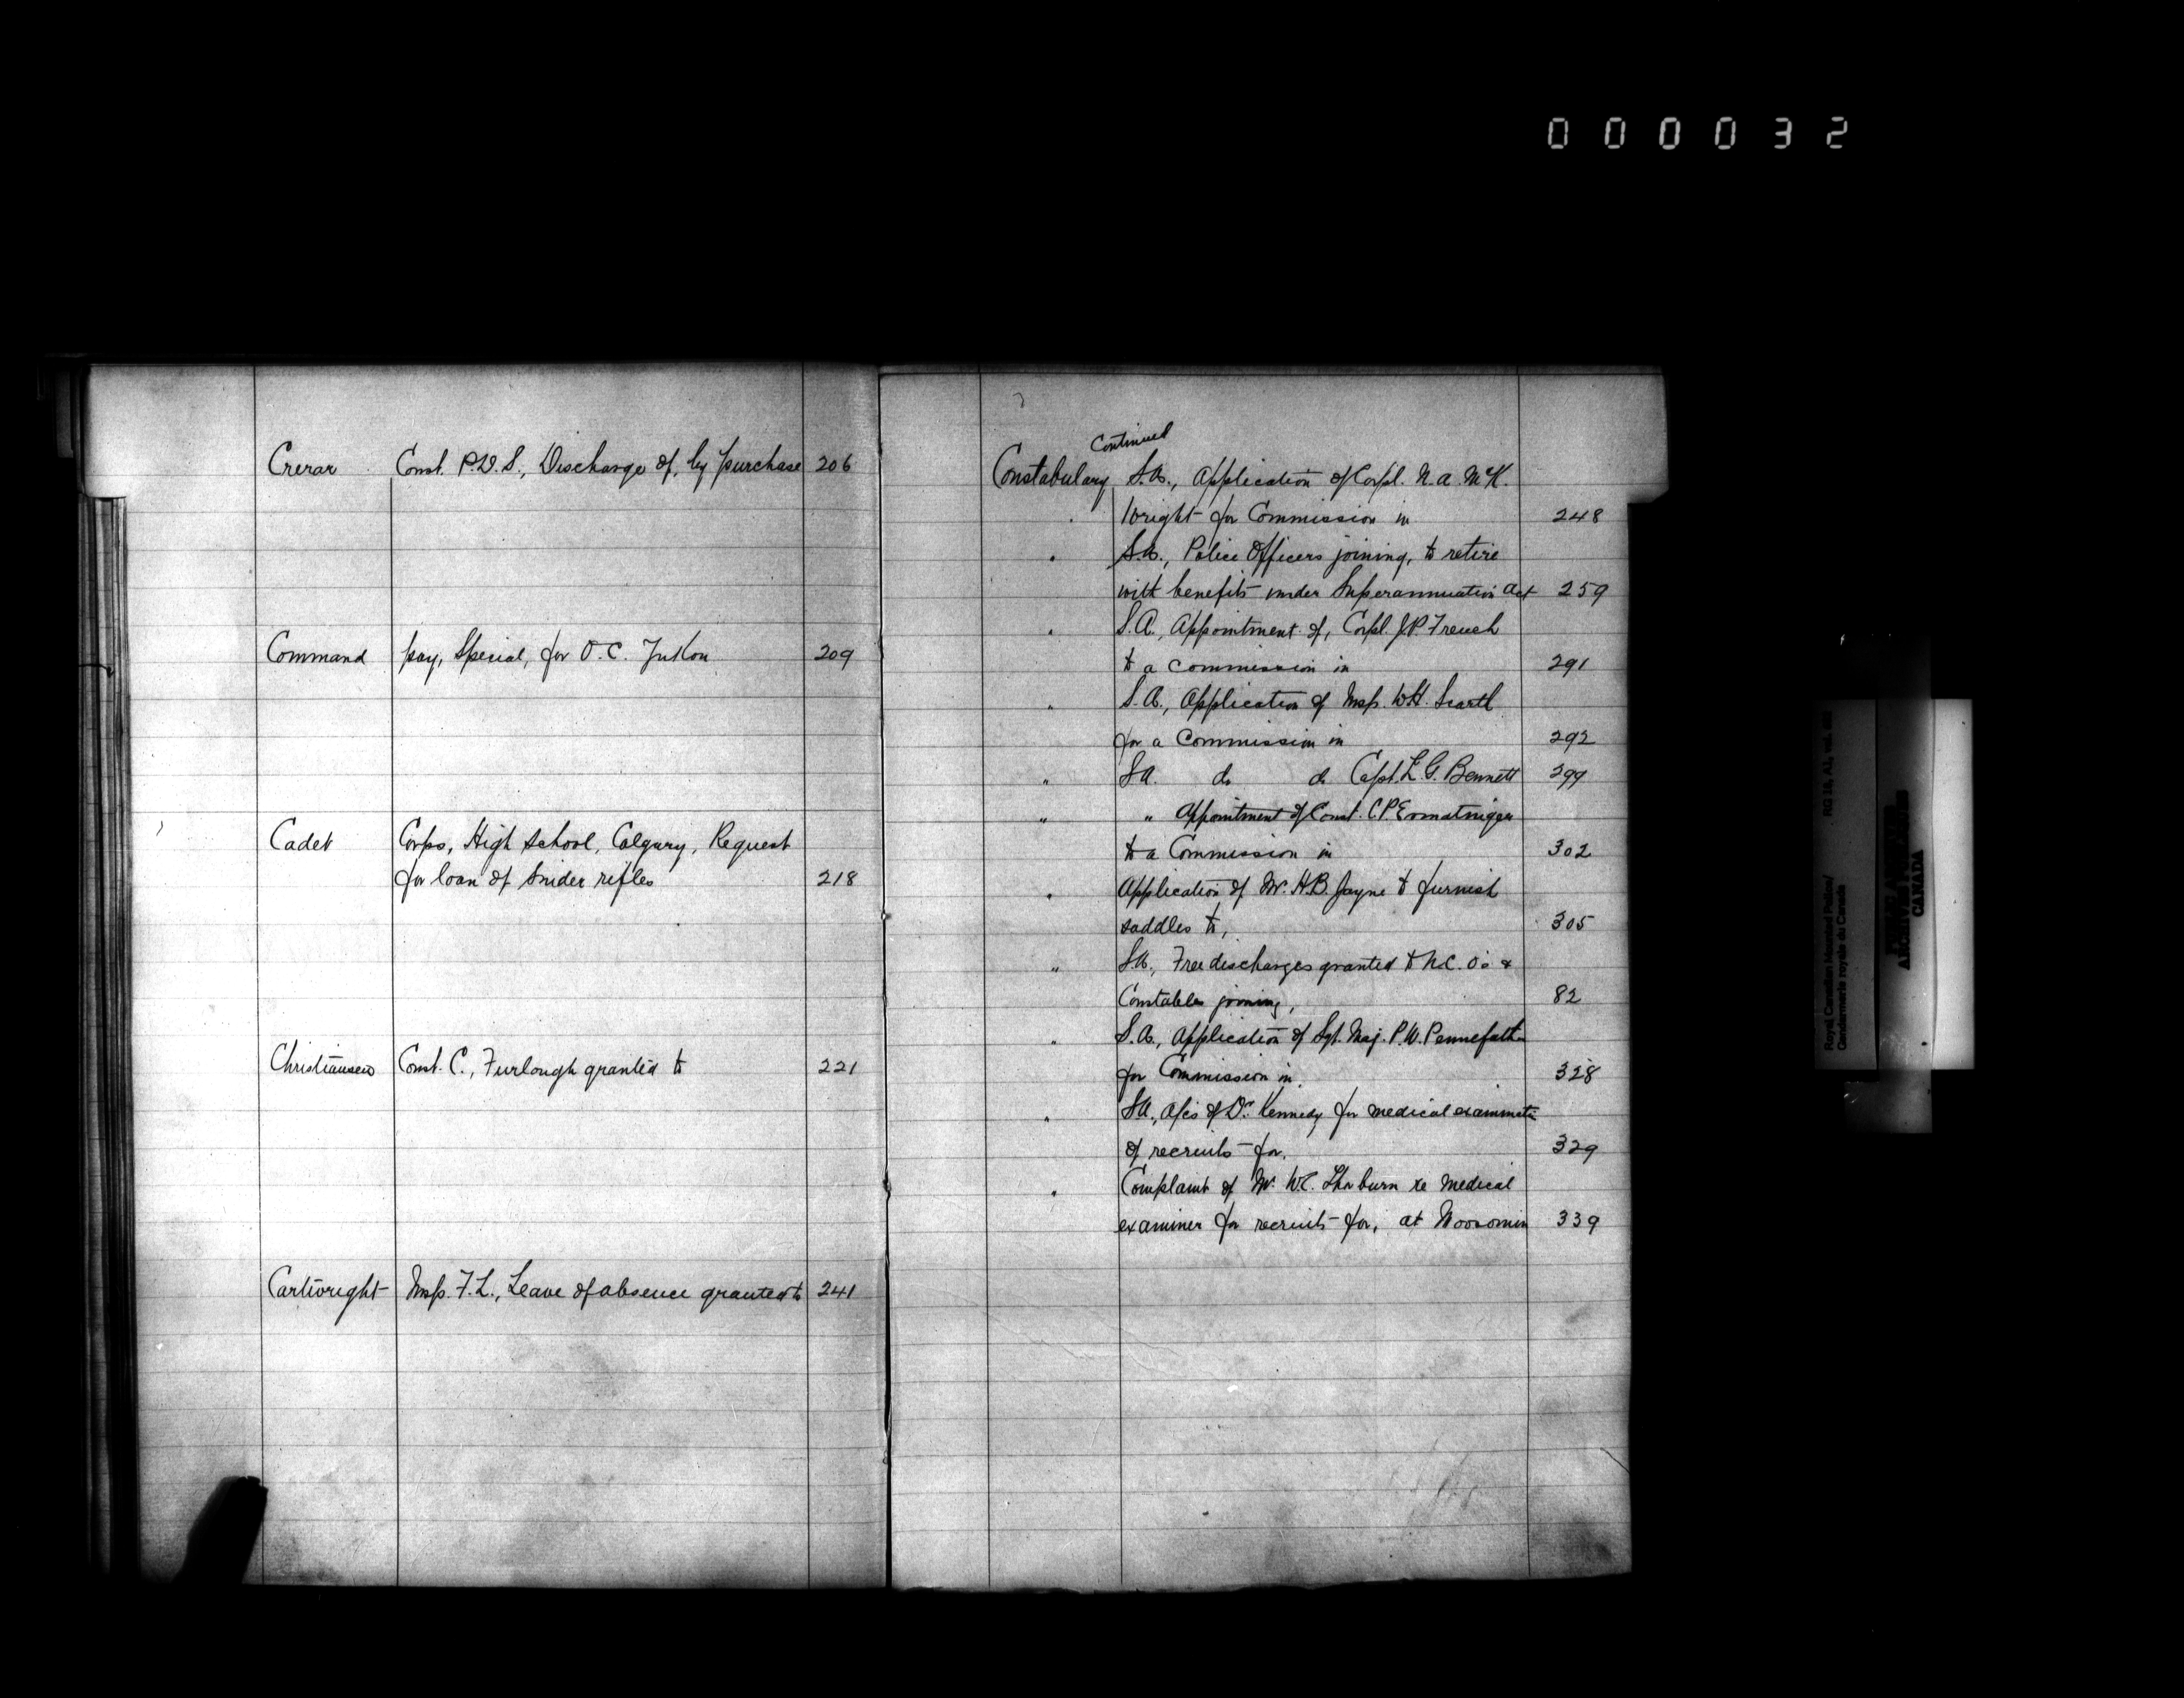 000032
Crerar Const. P.D.S., Discharge of, by purchase 206
Command pay, Special, for O.C. Yukon 209
Cadet Corps, High School, Calgary, Request
for loan of Snider rifles 218
Christiansen Const. C., Furlough granted to 221
Cartwright Insp. F.L., Leave of absence granted to 241
Continued
Constabulary S.A., Application of Corpl. N.A. McK.
Wright for Commission in 248
" S.A., Police Officers joining, to retire
with benefits under Superannuation Act 259
" S.A., Appointment of, Corpl. J.P. French
to a Commission in 291
" S.A., Application of Insp. W.H. Scarth
for a Commission in 292
" S.A. do do Capt. L.G. Bennett 299
" " Appointment of Const. C.P. Ermatinger
to a Commission in 302
" Application of Mr. H.B. Jayne to furnish
saddles to, 305
" S.A., Free discharges granted to N.C.O's &
Constables joining, 82
" S.A., Application of Sgt. Maj. P.W. Pennefath
for Commission in. 328
" S.A., a/cs of Dr. Kennedy for medical examinati
of recruits for. 329
" Complaint of Mr. W.C. Thorburn re medical
examiner for recruits for, at Moosomin 339
Royal Canadian Mounted Police/
Gendarmerie royale du Canada
RG 18, A1, vol.
ARCHIVES
CANADA